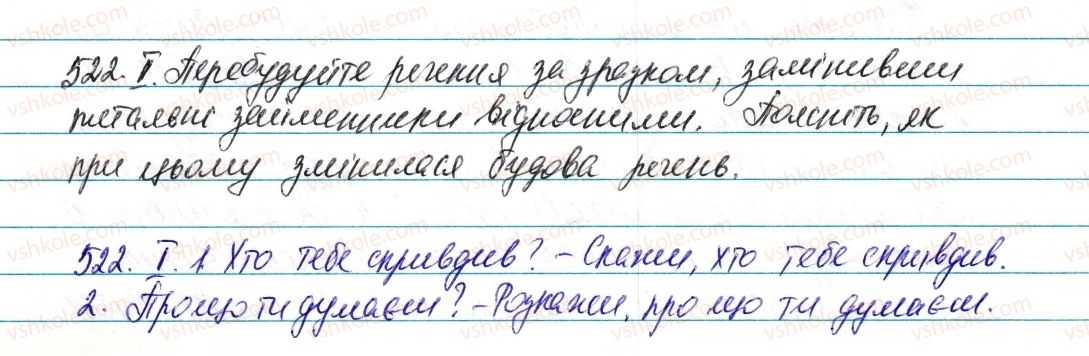 522. II. Перебудуйте речення за зразком, замінивши
питальні займенники відносними. Поясніть, як
при цьому змінилася будова речень.
522. I. 1. Хто тебе скривдив? – Скажи, хто тебе скривдив.
2. Про що ти думаєш? – Розкажи, про що ти думаєш.